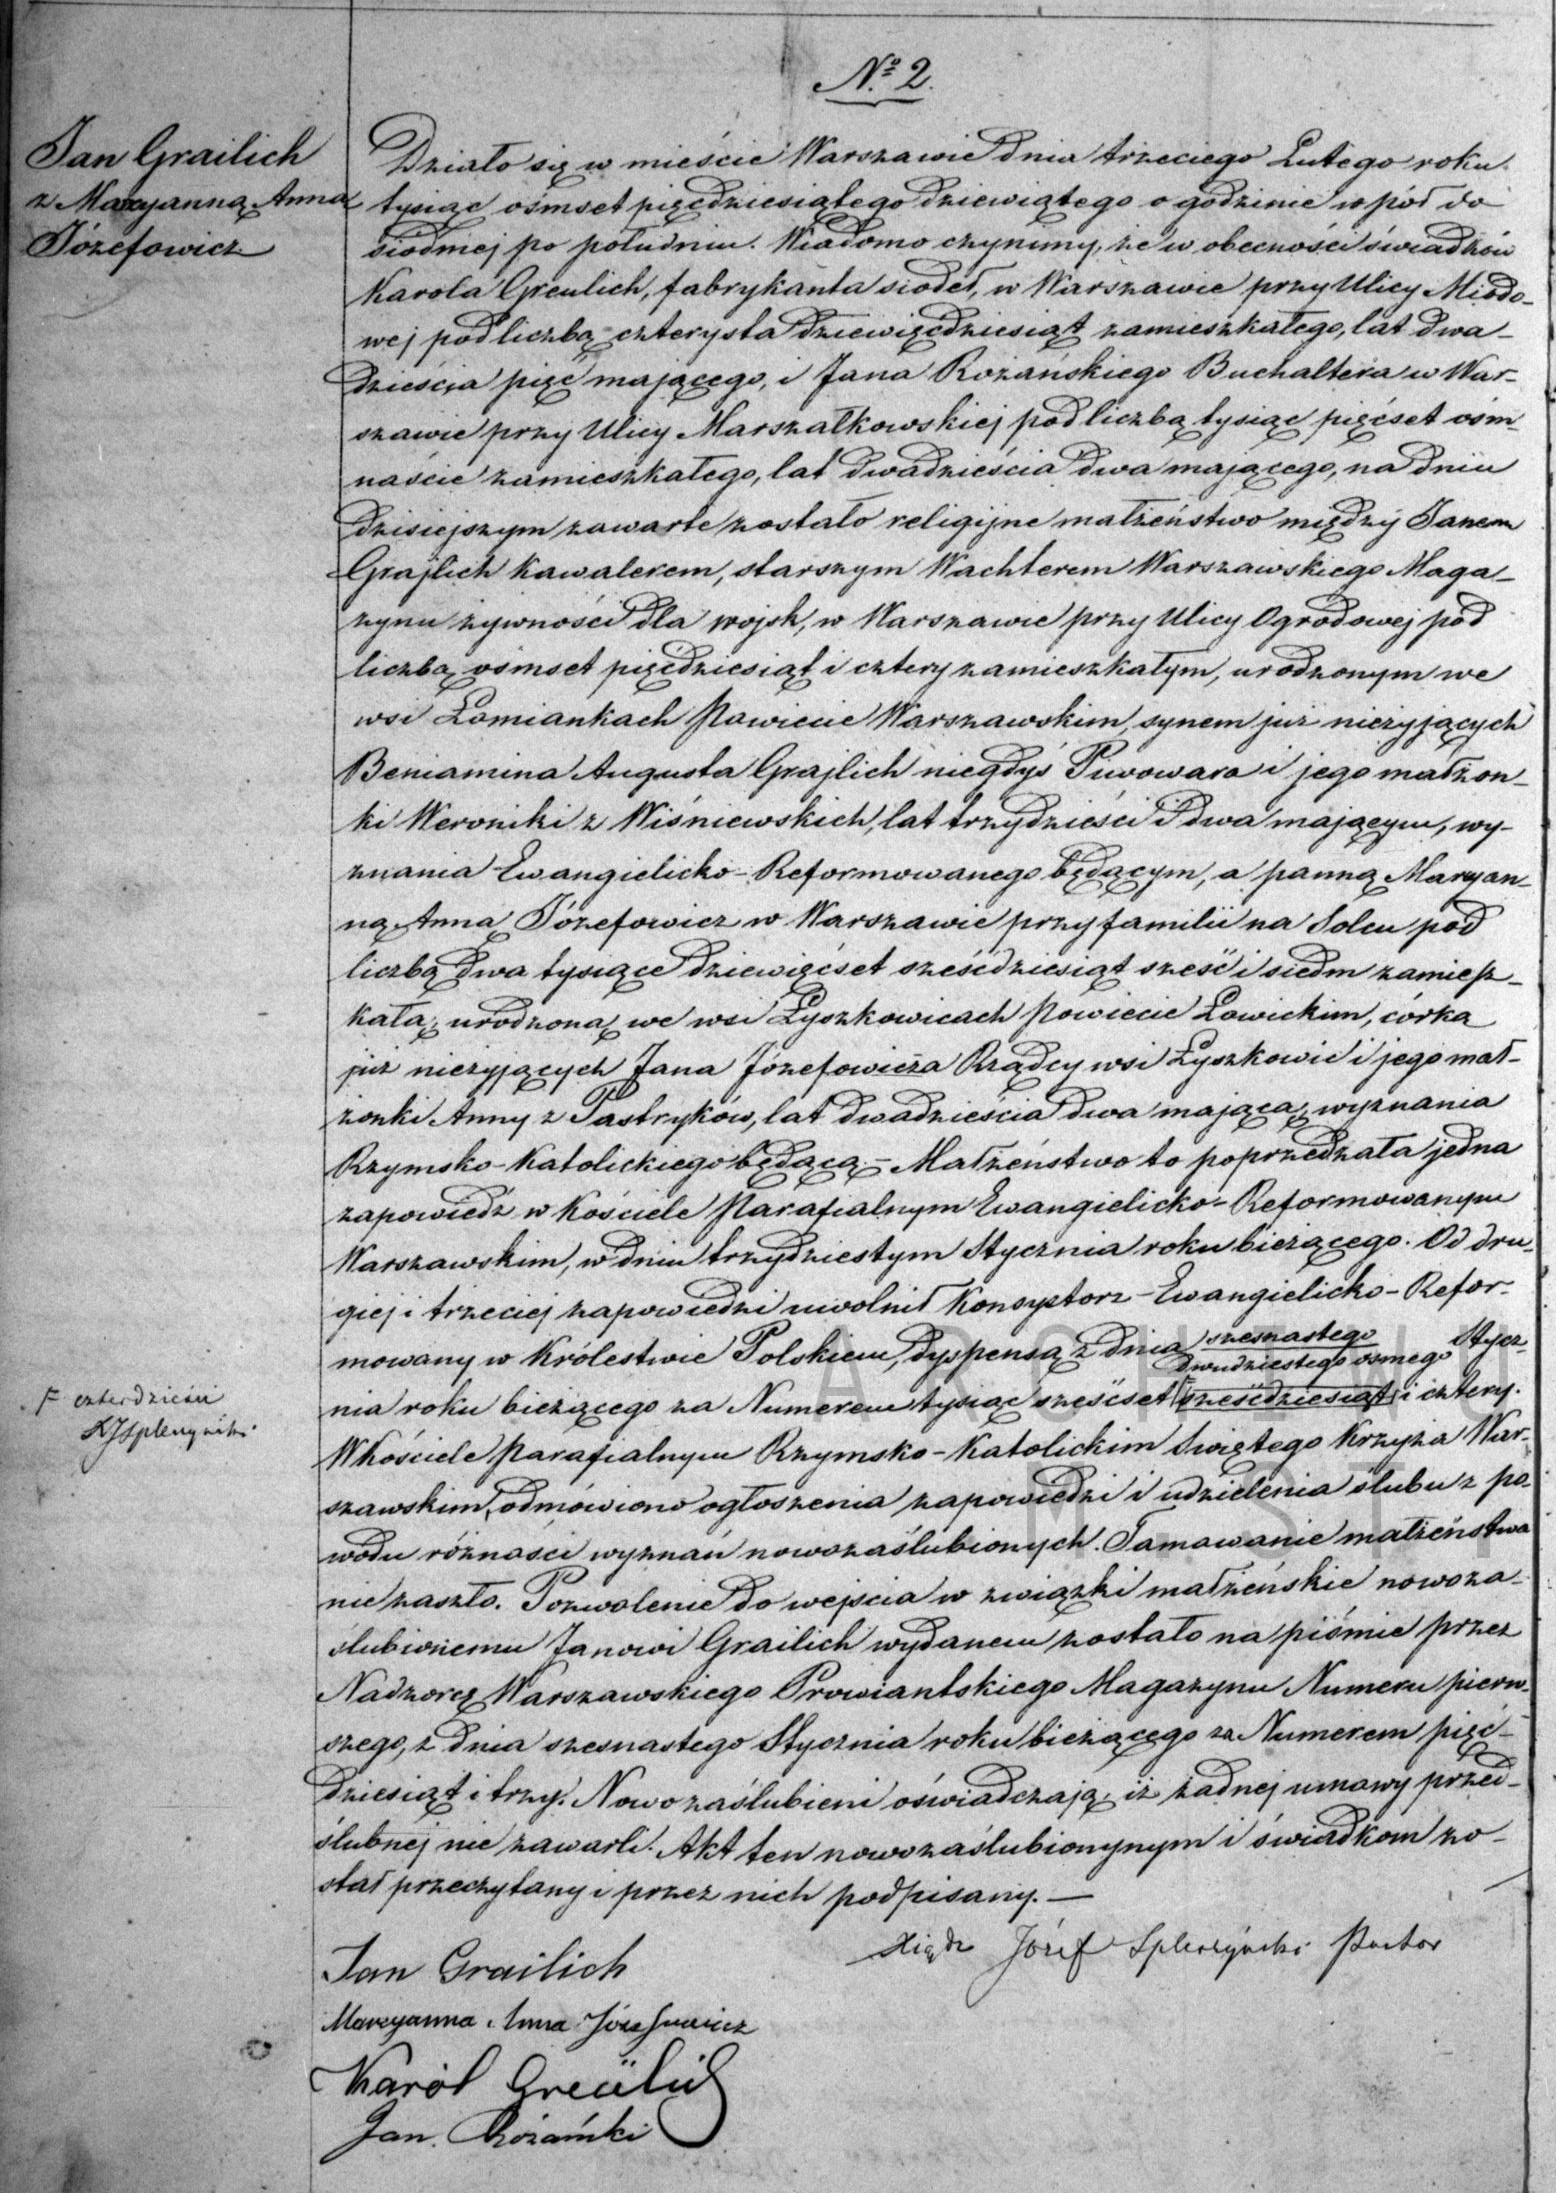 № 2.
Jan Grailich
z Maryanną Anną
Józefowicz
Działo się w mieście Warszawie dnia trzeciego Lutego roku
tysiąc ośmset pięćdziesiątego dziewiątego o godzinie wpół do
siódmej po południu. Wiadomo czynimy, że w obecności świadków
Karola Greulich, fabrykanta siodeł, w Warszawie przy Ulicy Miodo-
wej pod liczbą czterysta dziewięćdziesiąt zamieszkałego, lat dwa-
dzieścia pięć mającego, i Jana Rożańskiego Buchaltera w War-
szawie przy Ulicy Marszałkowskiej pod liczbą tysiąc pięćset ośm-
naście zamieszkałego, lat dwadzieścia dwa mającego, na dniu
dzisiejszym zawarte zostało religijne małżeństwo między Janem
Grajlich Kawalerem, starszym Wachterem Warszawskiego Maga-
zynu żywności dla wojsk, w Warszawie przy Ulicy Ogrodowej pod
liczbą ośmset pięćdziesiąt i cztery zamieszkałym, urodzonym we
wsi Łomiankach Powiecie Warszawskim, synem już nieżyjących
Beniamina Augusta Grajlich niegdyś Piwowara i jego małżon-
ki Weroniki z Wiśniewskich, lat trzydzieści i dwa mającym, wy-
znania Ewangielicko-Reformowanego będącym, a panną Maryan-
ną Anną Józefowicz w Warszawie przy familii na Solcu pod
liczbą dwa tysiące dziewięćset sześćdziesiąt sześć i siedm zamiesz-
kałą, urodzoną we wsi Łyszkowicach Powiecie Łowickim, córką
już nieżyjących Jana Józefowicza Rządcy wsi Łyszkowic i jego mał-
żonki Anny z Pastryków, lat dwadzieścia dwa mającą, wyznania
Rzymsko-Katolickiego będącą. – Małżeństwo to poprzedzała jedna
zapowiedź w Kościele Parafialnym Ewangielicko-Reformowanym
Warszawskim, w dniu trzydziestym Stycznia roku bieżącego. Od dru-
giej i trzeciej zapowiedzi uwolnił Konsystorz Ewangielicko-Refor-
mowany w Królestwie Polskiem, dyspensą z dnia szesnastego dwudziestego ósmego Stycz-
nia roku bieżącego za Numerem tysiąc sześćset sześćdziesiąt i cztery.
F czterdzieści
XJSpleszyński.
W Kościele Parafialnym Rzymsko-Katolickim Świętego Krzyża War-
szawskim, odmówiono ogłoszenia zapowiedzi i udzielenia ślubu z po-
wodu różności wyznań nowozaślubionych. Tamowanie małżeństwa
nie zaszło. Pozwolenie do wejścia w związki małżeńskie nowoza-
ślubionemu Janowi Grailich wydanem zostało na piśmie przez
Nadzorcę Warszawskiego Prowiantskiego Magazynu Numeru pierw-
szego, z dnia szesnastego Stycznia roku bieżącego za Numerem pięć-
dziesiąt i trzy. Nowozaślubieni oświadczają, iż żadnej umowy przed-
ślubnej nie zawarli. Akt ten nowozaślubionynym i świadkom zo-
stał przeczytany i przez nich podpisany. —
Xiądz Józef Spleszyński Pastor
Jan Grailich
Maryanna Anna Józefowicz
Karól Greülich
Jan Różański